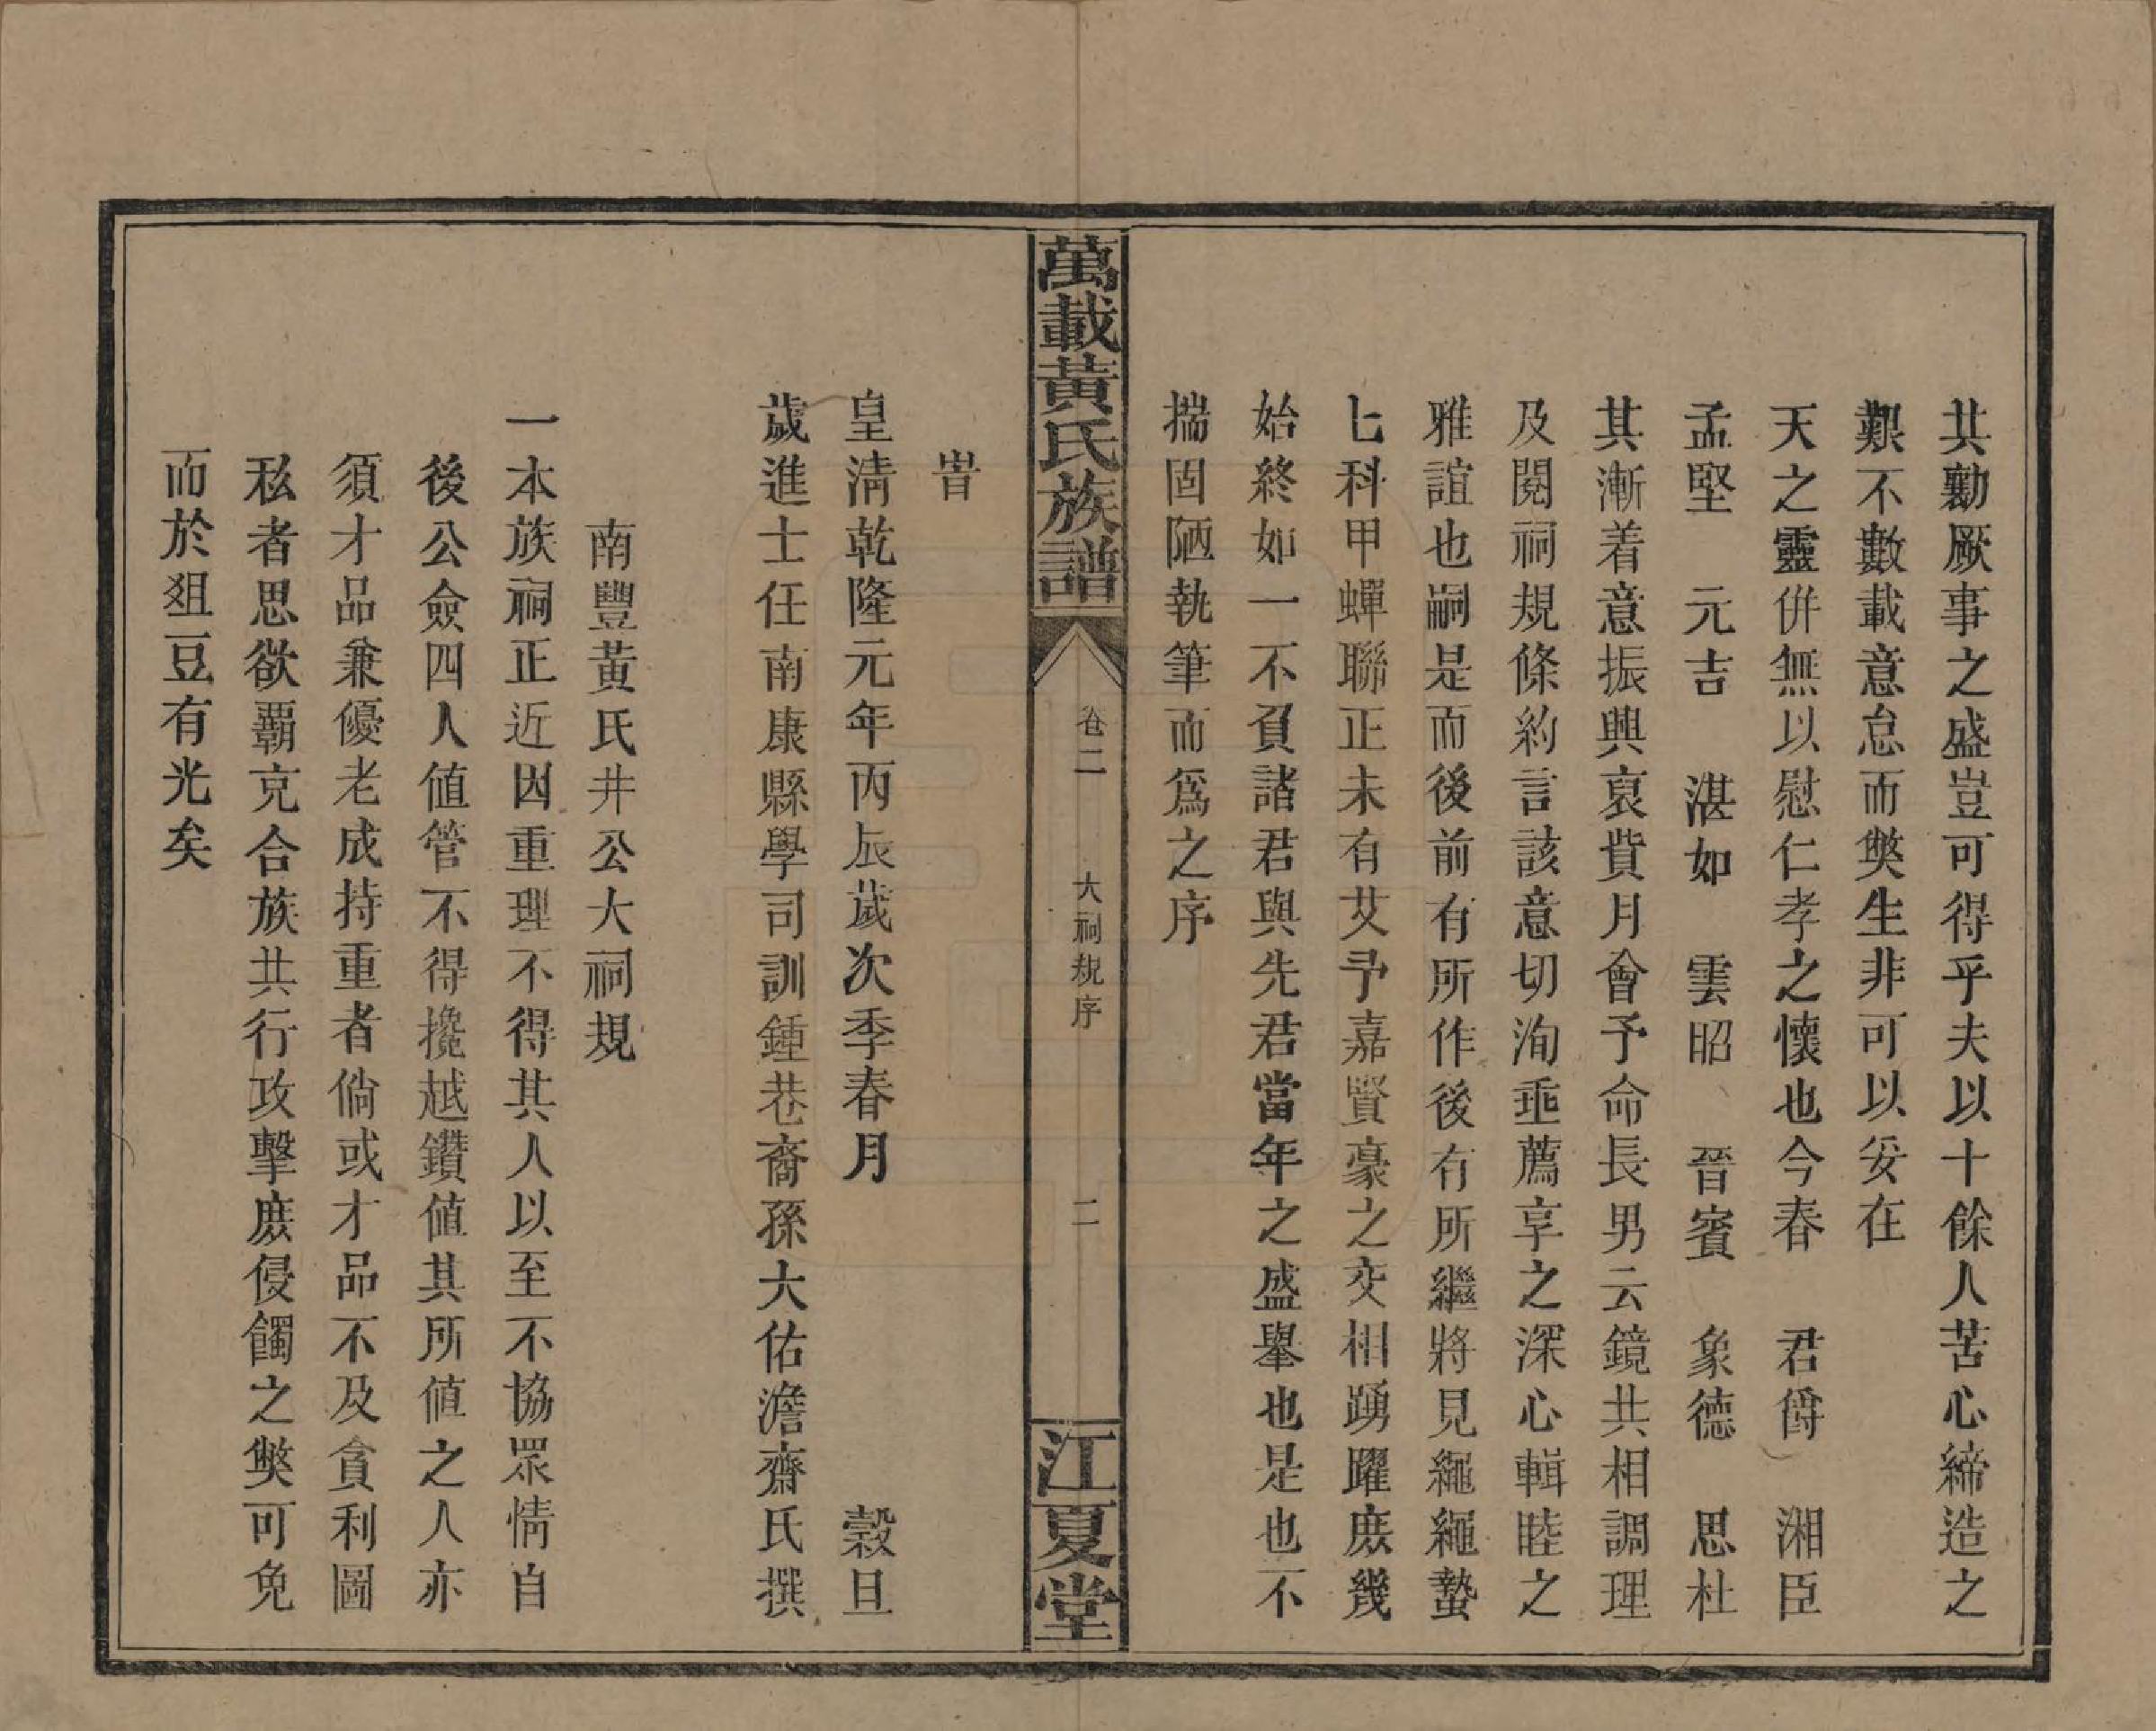 共勷厥事之盛豈可得乎夫以十餘人苦心締造之
艱不數載意怠而獘生非可以妥在
天之靈併無以慰仁孝之懷也今春　君爵　湘臣
孟堅　元吉　湛如　雲昭　晉賓　象德　思杜
其漸着意振興裒貲月會予命長男云鏡共相調理
及閱祠規條約言該意切洵亟薦享之深心輯睦之
雅誼也嗣是而後前有所作後有所繼將見繩繩蟄
七科甲蟬聯正未有艾予嘉賢豪之交相踴躍庶幾
始終如一不負諸君與先君當年之盛舉也是也不
揣固陋執筆而爲之序
萬載黃氏族譜
卷二
大祠規序
二
江夏堂
旹
皇淸乾隆元年丙辰歲次季春月　穀旦
歲進士任南康縣學司訓鍾巷裔孫大佑澹齋氏撰
南豐黃氏井公大祠規
一本族祠正近因重理不得其人以至不協眾情自
後公僉四人値管不得攙越鑽値其所値之人亦
須才品兼優老成持重者倘或才品不及貪利圖
私者思欲覇克合族共行攻擊庶侵䗶之獘可免
而於爼豆有光矣